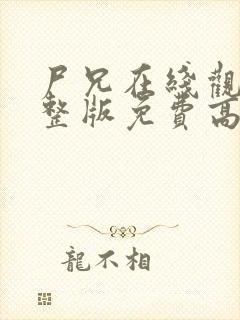 尸兄在綫觀
整版免費高
龍不相